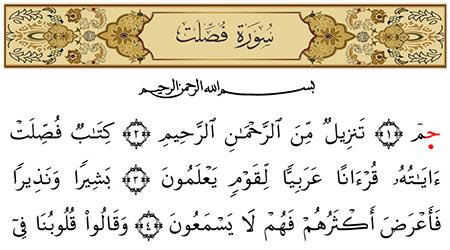 سُورَةُ فُصِّلَتْ
بسم الله الرحمن الرحيم
جمٓ ﴿١﴾ تَنزِيلٌ مِّنَ ٱلرَّحْمَٰنِ ٱلرَّحِيمِ ﴿٢﴾ كِتَٰبٌ فُصِّلَتْ
ءَايَٰتُهُۥ قُرْءَانًا عَرَبِيًّا لِّقَوْمٍ يَعْلَمُونَ ﴿٣﴾ بَشِيرًا وَنَذِيرًا
فَأَعْرَضَ أَكْثَرُهُمْ فَهُمْ لَا يَسْمَعُونَ ﴿٤﴾ وَقَالُوا۟ قُلُوبُنَا فِىٓ